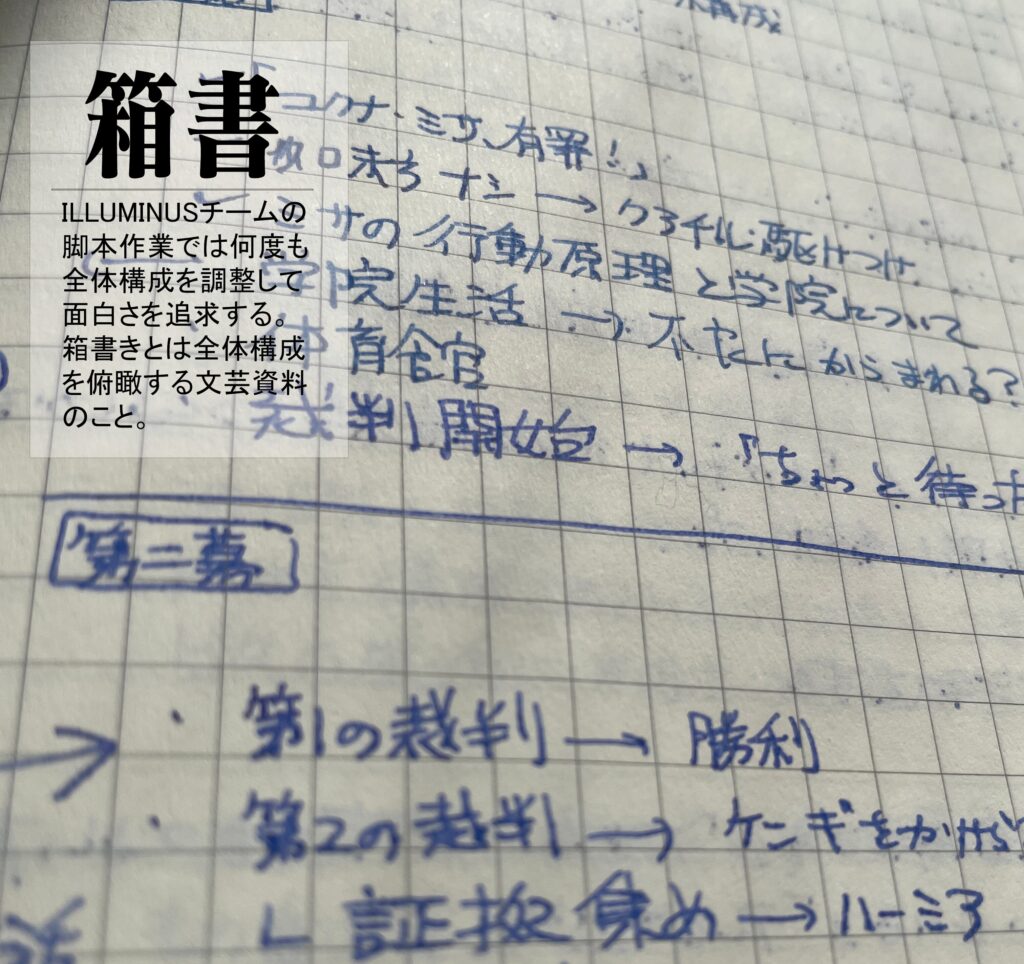 箱書
ILLUMINUSチームの
脚本作業では何度も
全体構成を調整して
面白さを追求する。
箱書きとは全体構成
を俯瞰する文芸資料
のこと。
コクナ・ミサ、有罪!」
ナシ → クラチル駆けつけ
ミサの行動原理と学院について
学院生活 → 不セにからまれる?
体育会官
裁判開始 → 「ちょっと待った
第二幕
・第1の裁判 → 勝利
・第2の裁判 → ケンギをかけら
∟ 証拠集め → ハーミア